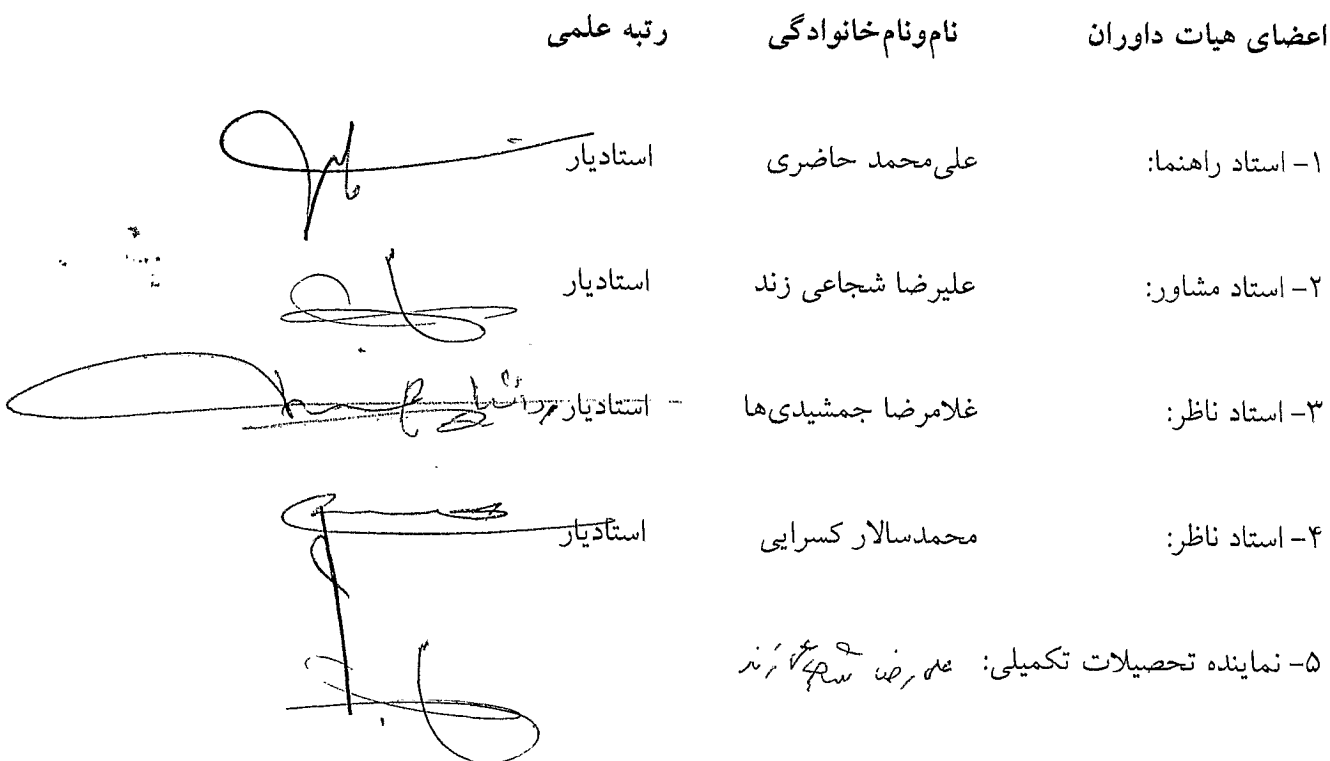 اعضای هیات داوران نام‌ونام‌خانوادگی رتبه علمی
۱- استاد راهنما: علی‌محمد حاضری استادیار
۲- استاد مشاور: علیرضا شجاعی زند استادیار
۳- استاد ناظر: غلامرضا جمشیدی‌ها استادیار
۴- استاد ناظر: محمدسالار کسرایی استادیار
۵- نماینده تحصیلات تکمیلی: علیرضا شجاعی زند